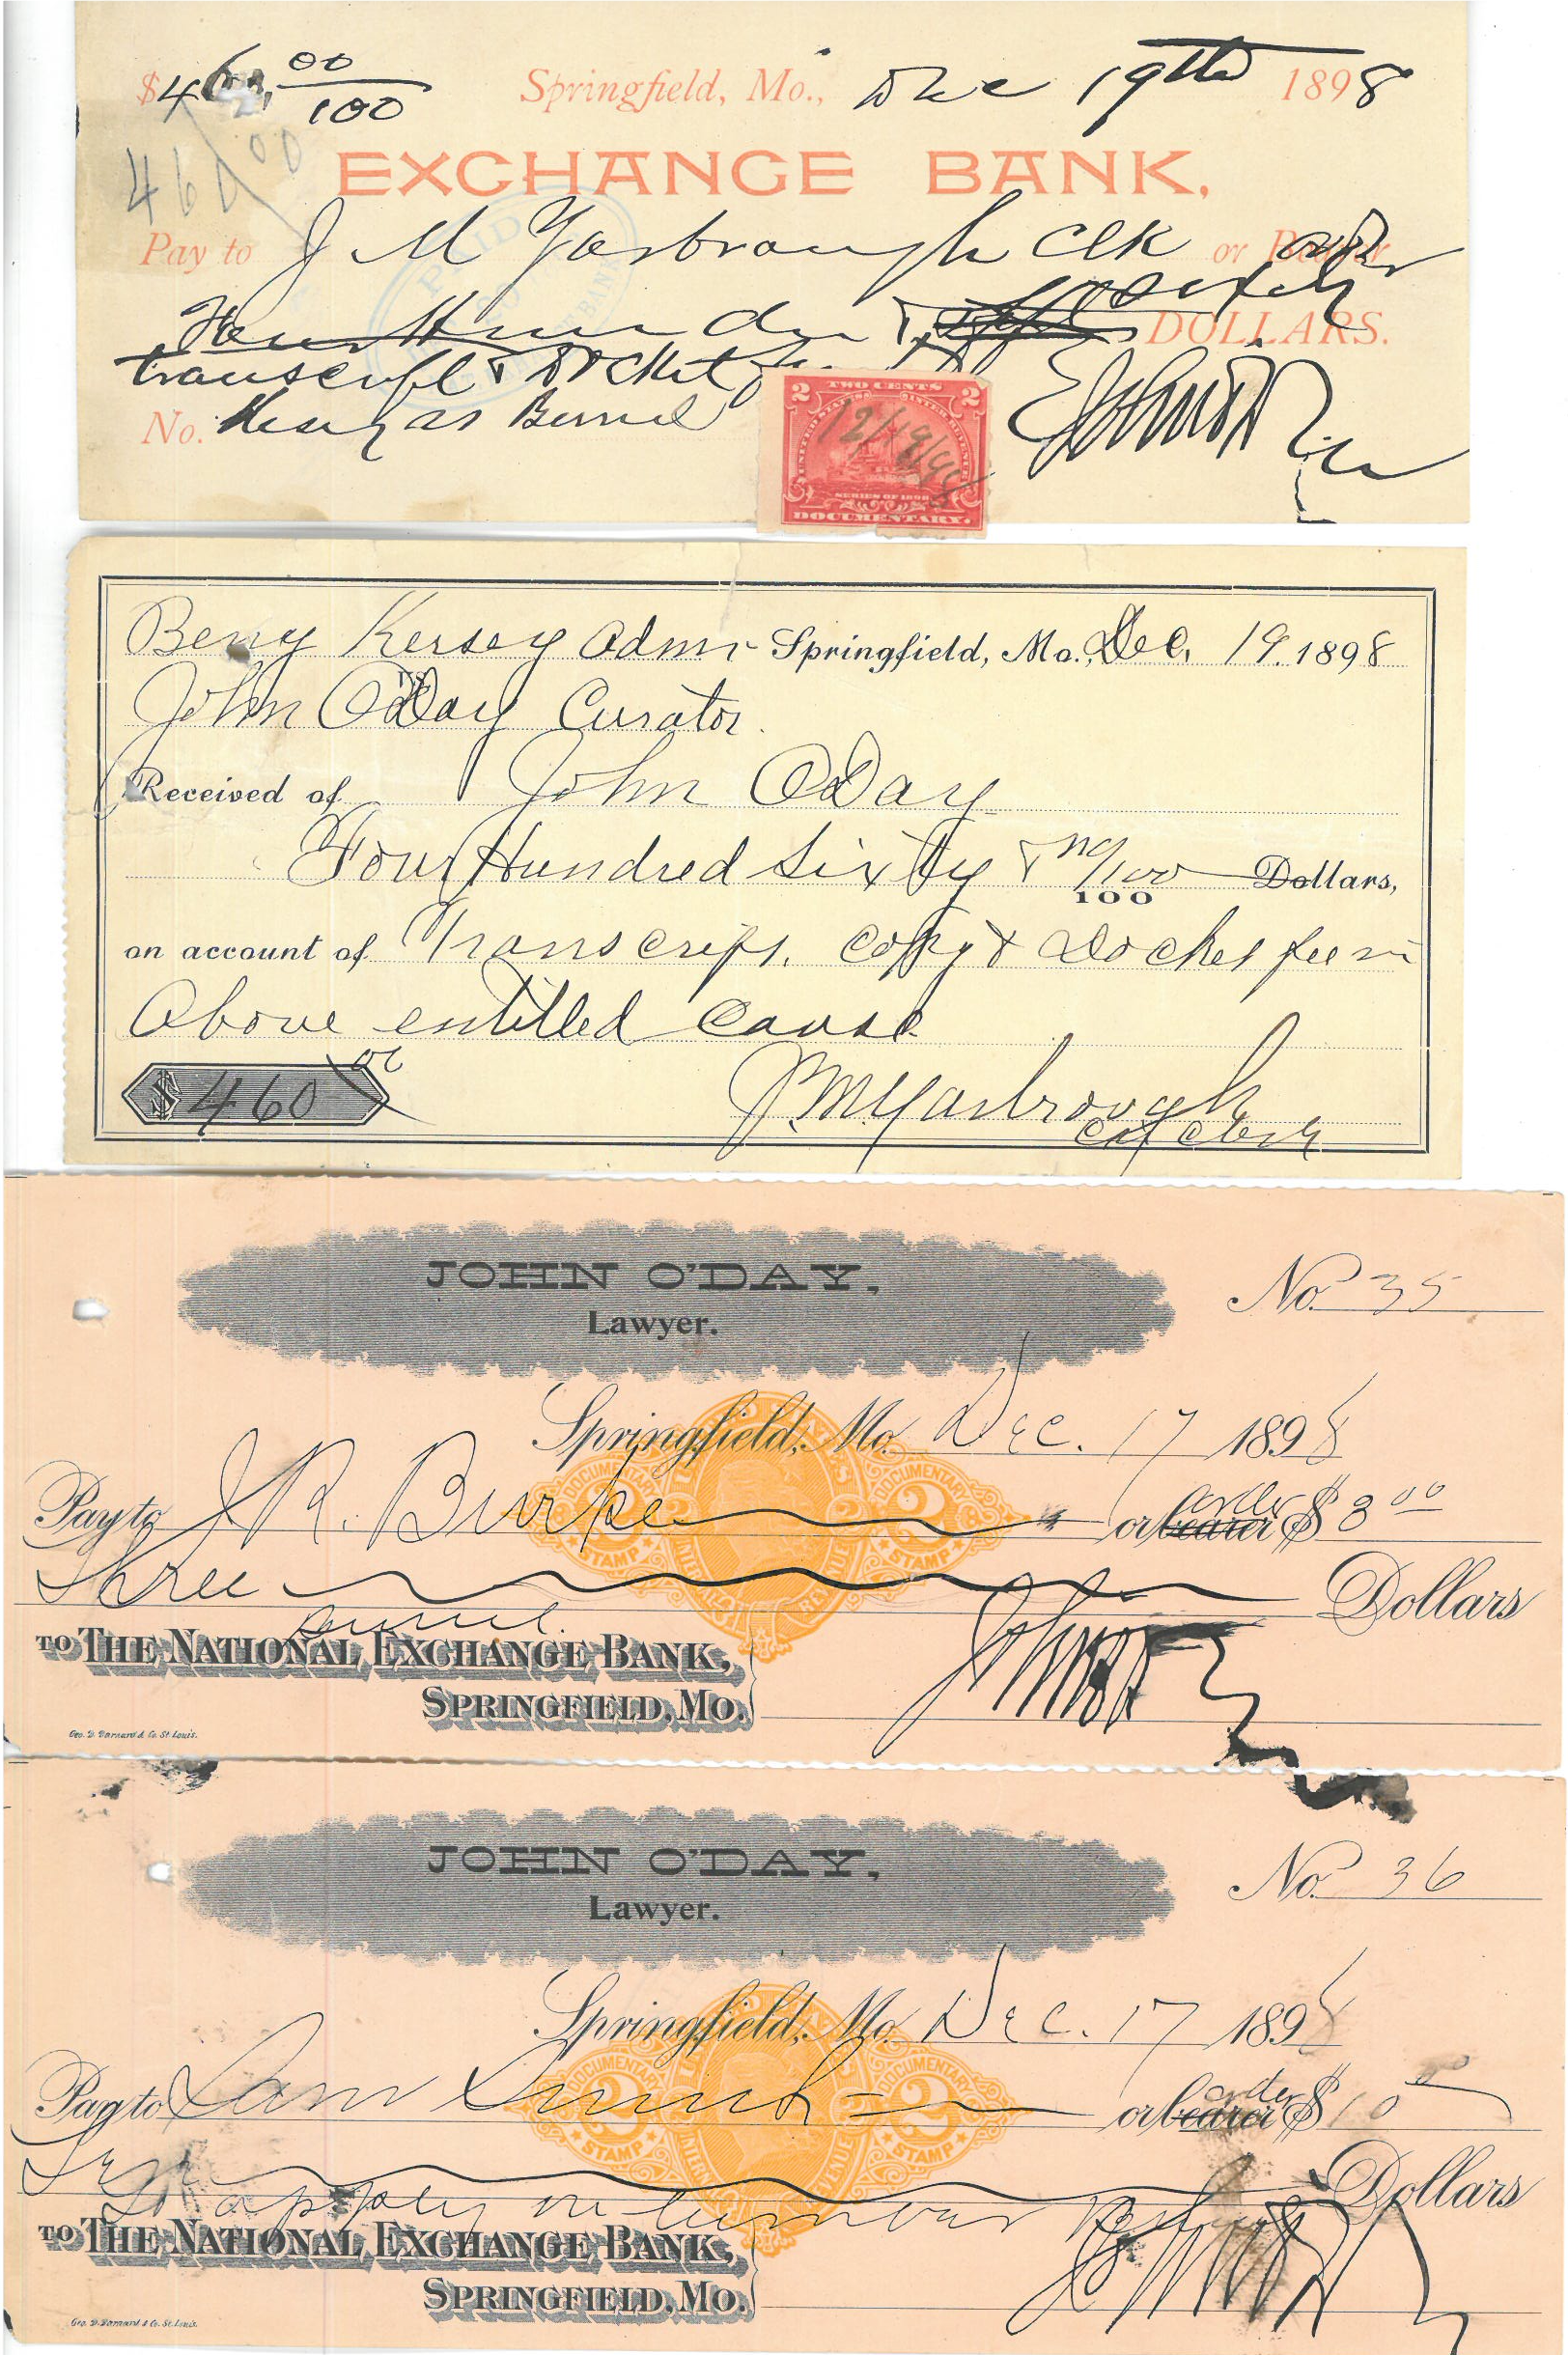 $460 00/100 Springfield, Mo., Dec 19th 1898
460 00
EXCHANGE BANK,
PAID
Pay to J M Yarbrough Clk or Bearer order
Four Hundred & sixty DOLLARS.
transcript & Docket fee
No. Kersey as Burrel
2 TWO CENTS 2
12/19/98
SERIES OF 1898
DOCUMENTARY.
John O'Day
Benj Kersey Admr Springfield, Mo., Dec. 19. 1898
vs
John O'Day Curator.
Received of John O'Day
Four Hundred Sixty & no/100 Dollars,
100
on account of Transcript, copy & Docket fee in
Above entitled cause
$460 00
J. M. Yarbrough
Cir Clerk
JOHN O'DAY,
Lawyer.
No. 35
Springfield, Mo. Dec. 17 1898
Pay to J R. Burke or bearer order $ 3 00
DOCUMENTARY 2 STAMP
Three Dollars
TO THE NATIONAL EXCHANGE BANK,
SPRINGFIELD, MO.
John O'Day
Geo. D. Barnard & Co. St. Louis.
JOHN O'DAY,
Lawyer.
No. 36
Springfield, Mo. Dec. 17 1898
Pay to Sam or bearer order $ 10 00
DOCUMENTARY 2 STAMP
Ten Dollars
To apply on lumber
TO THE NATIONAL EXCHANGE BANK,
SPRINGFIELD, MO.
John O'Day
Geo. D. Barnard & Co. St. Louis.